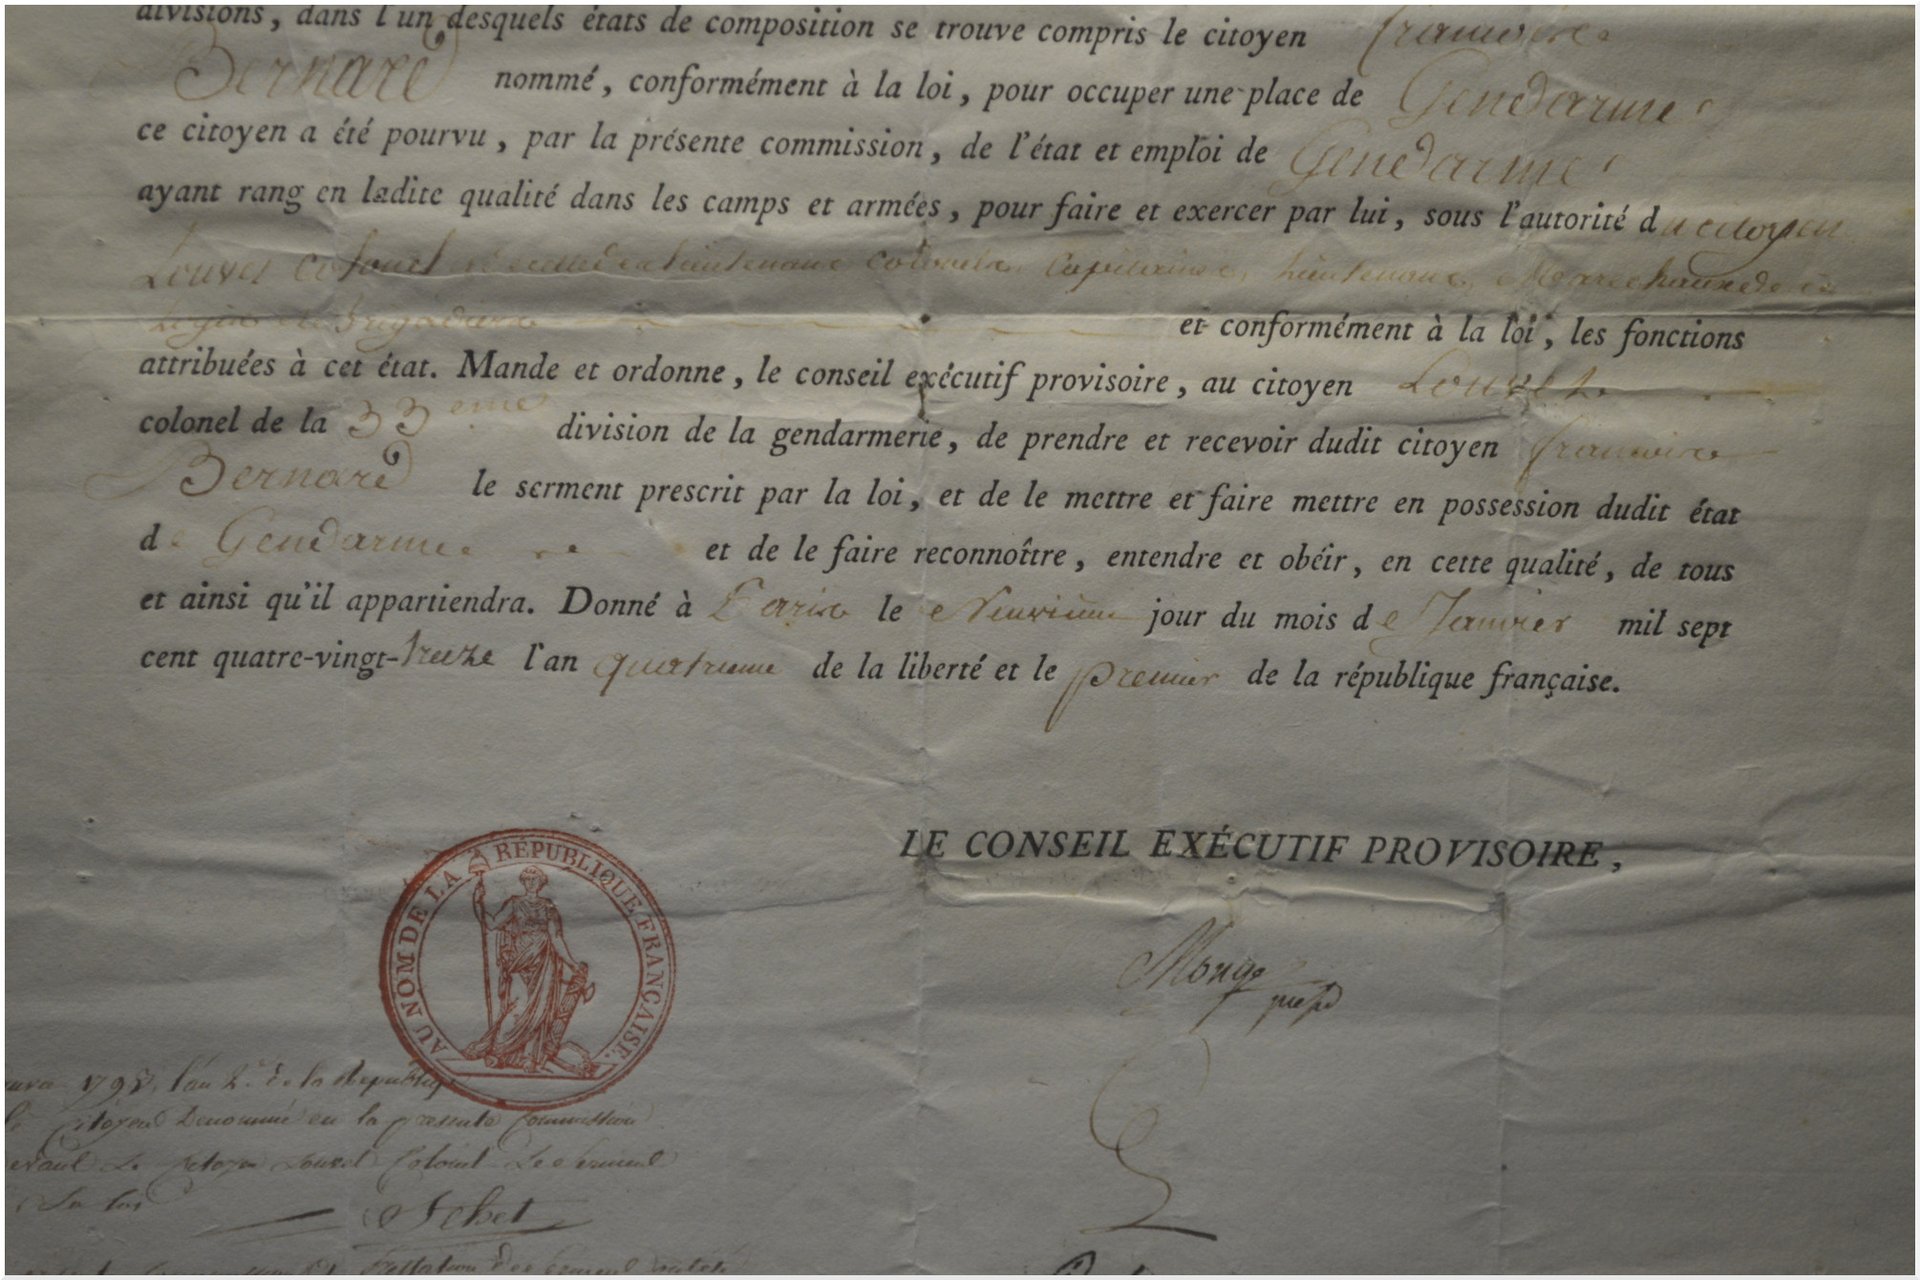 divisions, dans l'un desquels états de composition se trouve compris le citoyen françois
Bernard nommé, conformément à la loi, pour occuper une place de Gendarme
ce citoyen a été pourvu, par la présente commission, de l'état et emploi de Gendarme
ayant rang en ladite qualité dans les camps et armées, pour faire et exercer par lui, sous l'autorité du citoyen
Louvet Colonel lieutenant colonels, Capitaines, lieutenans, Marechaux de
Logis et Brigadiers et conformément à la loi, les fonctions
attribuées à cet état. Mande et ordonne, le conseil exécutif provisoire, au citoyen Louvet
colonel de la 33eme division de la gendarmerie, de prendre et recevoir dudit citoyen françois
Bernard le serment prescrit par la loi, et de le mettre et faire mettre en possession dudit état
de Gendarme et de le faire reconnoître, entendre et obéir, en cette qualité, de tous
et ainsi qu'il appartiendra. Donné à Paris le Neuvieme jour du mois de Janvier mil sept
cent quatre-vingt-treize l'an quatrieme de la liberté et le premier de la république française.
LE CONSEIL EXÉCUTIF PROVISOIRE,
AU NOM DE LA RÉPUBLIQUE FRANÇAISE.
Monge
l'an 2e de la Republiq
citoyen Denommé en la presente Commission
Le citoyen Louvet Colonel Le serment
La loi